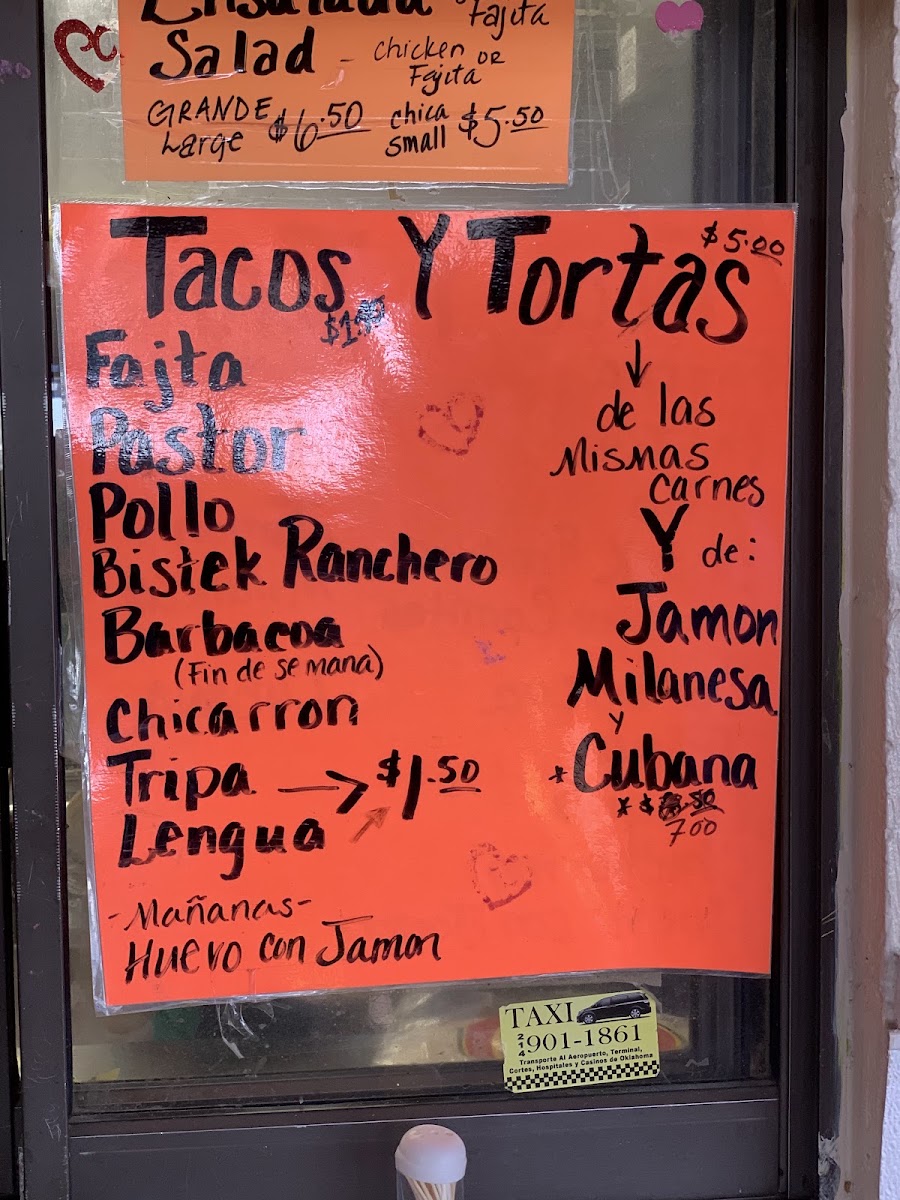 Ensalada
Fajita
Salad - Chicken OR
Fajita
GRANDE $6.50 chica $5.50
Large small
Tacos Y Tortas $5.00
Fajta
Pastor
Pollo
Bistek Ranchero
Barbacoa
(Fin de semana)
Chicarron
Tripa → $1.50
Lengua
-Mañanas-
Huevo con Jamon
↓
de las
Mismas
carnes
Y de:
Jamon
Milanesa
y
*Cubana
700
TAXI
214 901-1861
Transporte Al Aeropuerto, Terminal,
Cortes, Hospitales y Casinos de Oklahoma